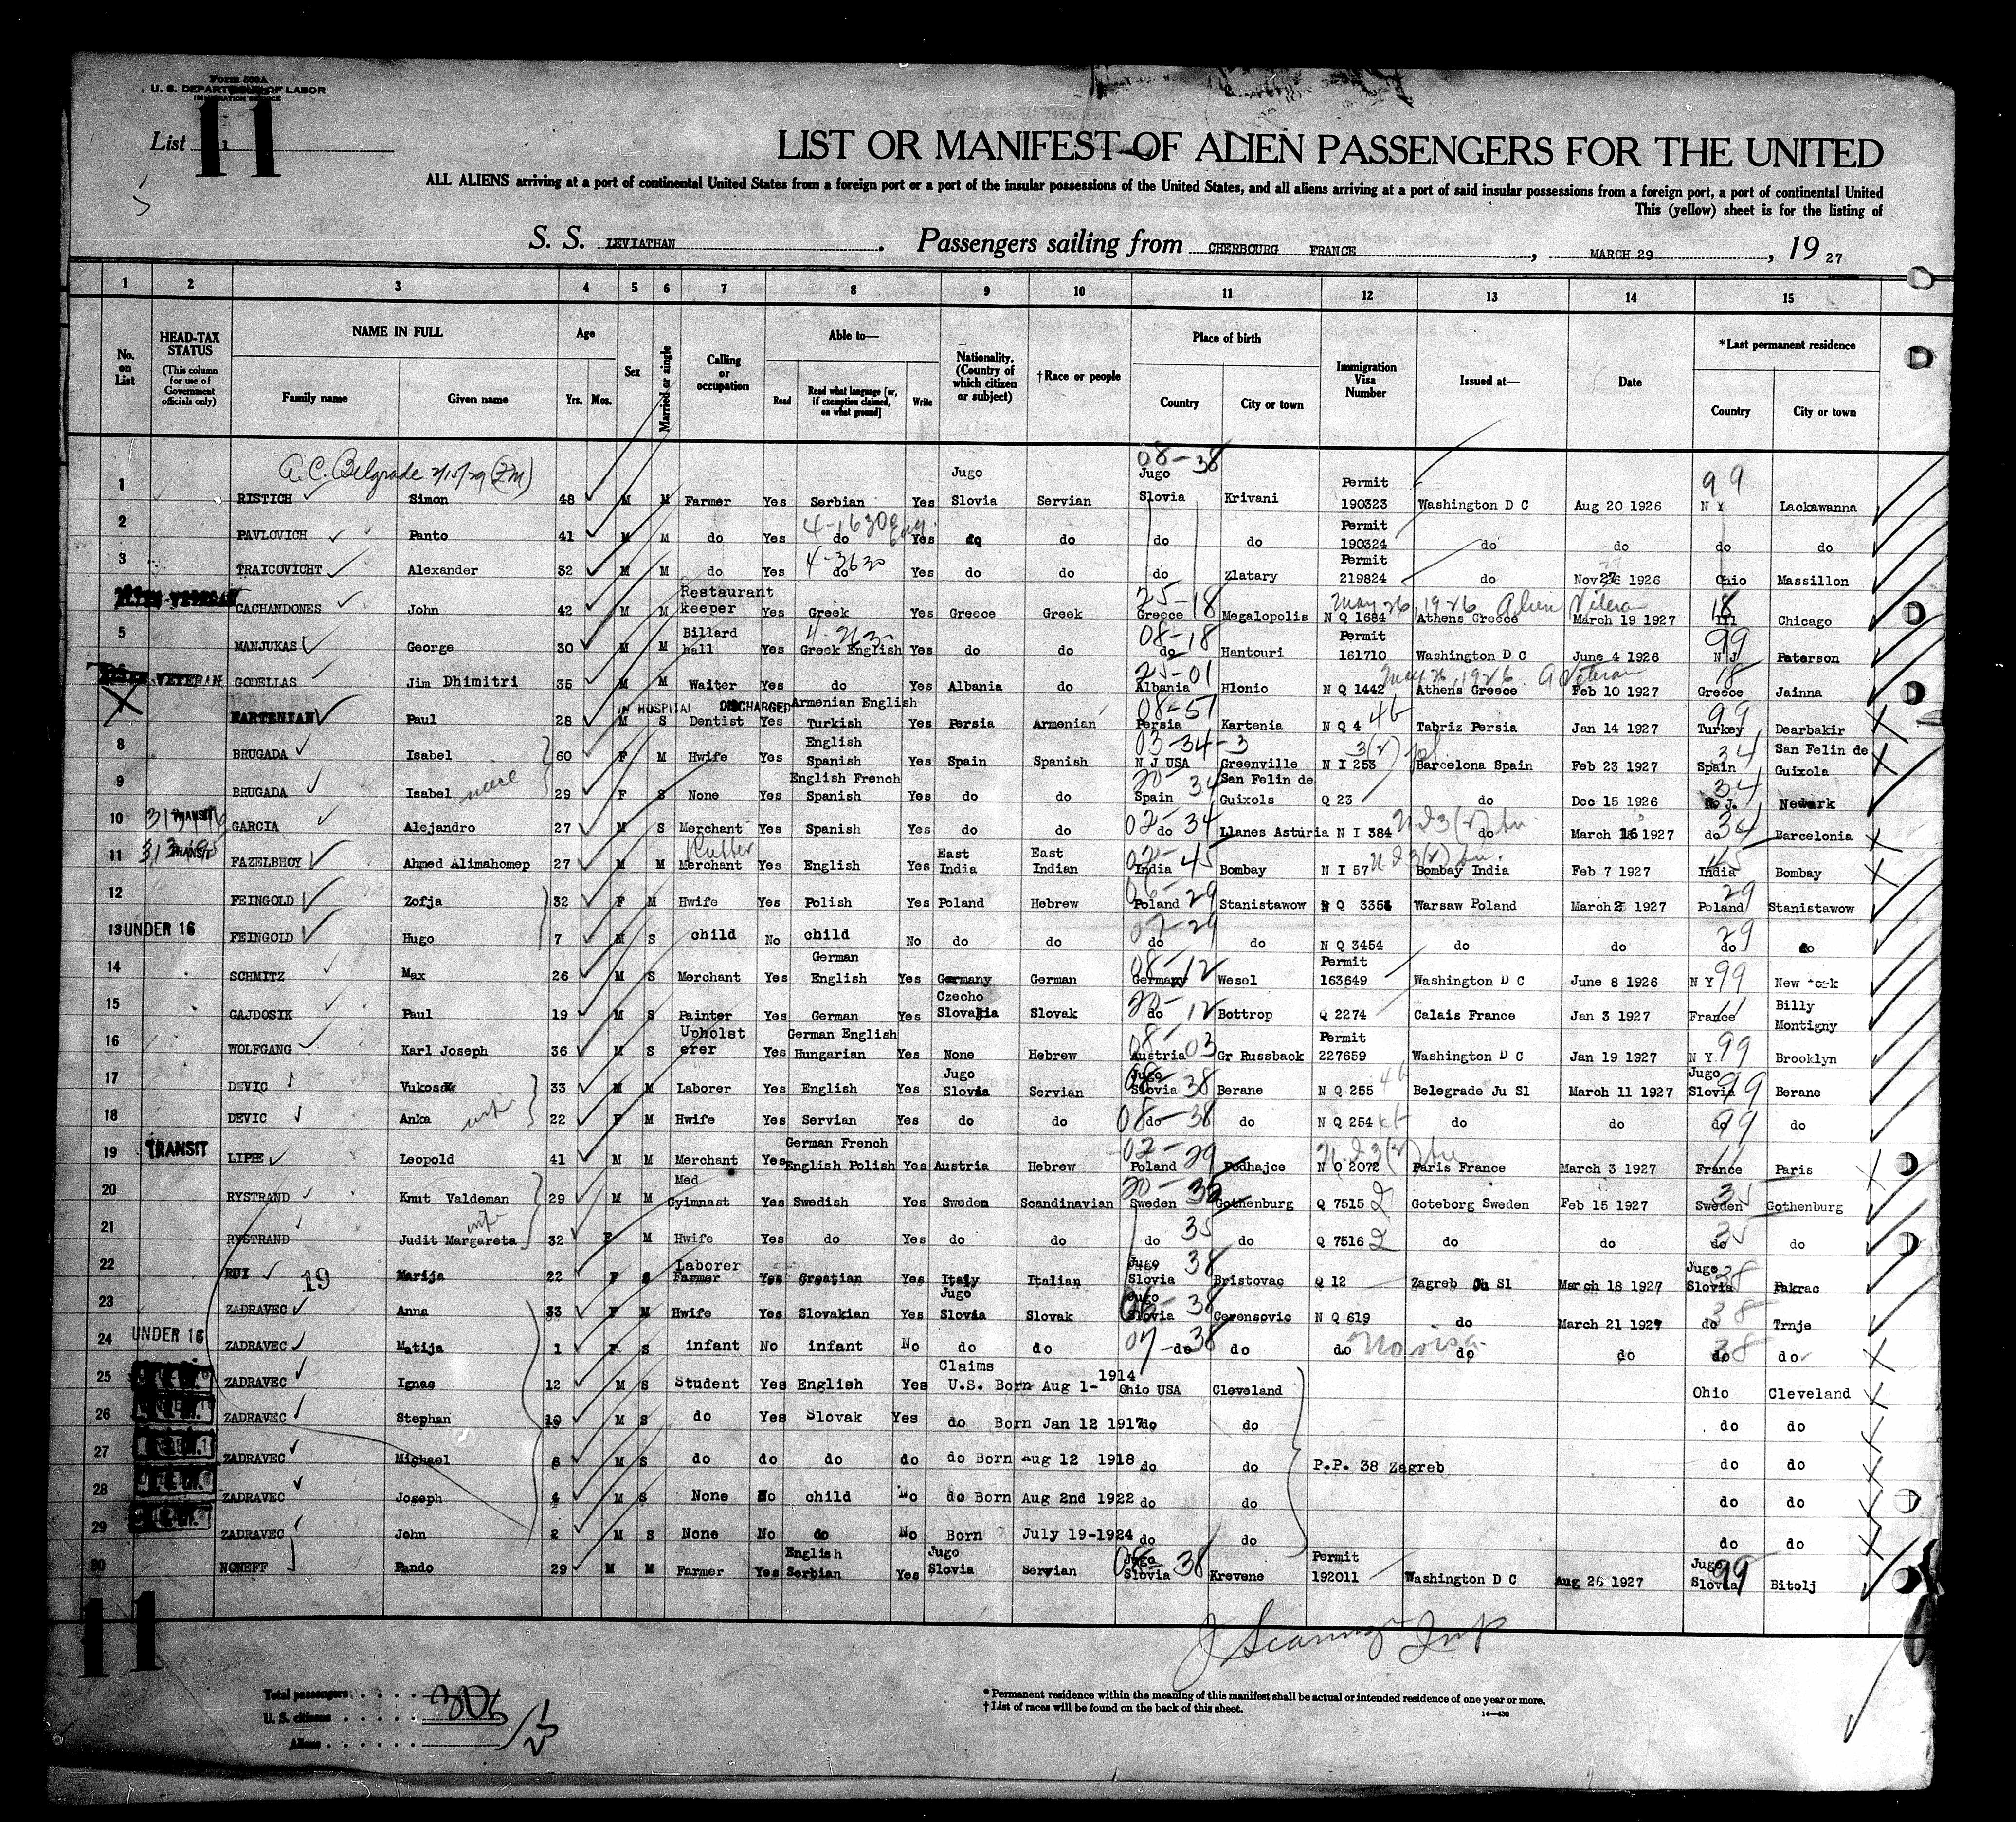 Form 500A
U. S. DEPARTMENT OF LABOR
IMMIGRATION SERVICE
List 1
11
LIST OR MANIFEST OF ALIEN PASSENGERS FOR THE UNITED
ALL ALIENS arriving at a port of continental United States from a foreign port or a port of the insular possessions of the United States, and all aliens arriving at a port of said insular possessions from a foreign port, a port of continental United
This (yellow) sheet is for the listing of
S. S. LEVIATHAN . Passengers sailing from CHERBOURG FRANCE , MARCH 29 , 19 27
1 2 3 4 5 6 7 8 9 10 11 12 13 14 15
No. on List HEAD-TAX STATUS (This column for use of Government officials only) NAME IN FULL Family name Given name Age Yrs. Mos. Sex Married or single Calling or occupation Able to— Read Read what language [or, if exemption claimed, on what ground] Write Nationality. (Country of which citizen or subject) †Race or people Place of birth Country City or town Immigration Visa Number Issued at— Date *Last permanent residence Country City or town
A.C. Belgrade 2/15/29 (ZM)
1 RISTICH Simon 48 M M Farmer Yes Serbian Yes Jugo Slovia Servian 08-38 Jugo Slovia Krivani Permit 190323 Washington D C Aug 20 1926 99 N Y Lackawanna
2 PAVLOVICH Panto 41 M M do Yes 4-1630 Eng. do Yes do do do do Permit 190324 do do do do
3 TRAICOVICHT Alexander 32 M M do Yes 4-3630 do Yes do do do Zlatary Permit 219824 do Nov 1926 Ohio Massillon
ALIEN VETERAN CACHANDONES John 42 M M Restaurant keeper Yes Greek Yes Greece Greek 25-18 Greece Megalopolis May 26, 1926 Alien Veteran N Q 1684 Athens Greece March 19 1927 18 Ill Chicago
5 MANJUKAS George 30 M M Billard hall Yes 4-263 Greek English Yes do do 08-18 do Hantouri Permit 161710 Washington D C June 4 1926 99 N J Paterson
VETERAN GODELLAS Jim Dhimitri 35 M M Waiter Yes do Yes Albania do 25-01 Albania Hlonio May 26, 1926 A Veteran N Q 1442 Athens Greece Feb 10 1927 18 Greece Jainna
X KARTENIAN Paul 28 IN HOSPITAL DISCHARGED M S Dentist Yes Armenian English Turkish Yes Persia Armenian 08-51 Persia Kartenia N Q 4 46 Tabriz Persia Jan 14 1927 99 Turkey Dearbakir
8 BRUGADA Isabel 60 F M Hwife Yes English Spanish Yes Spain Spanish 03-34-3 N J USA Greenville 3(2) N I 253 Barcelona Spain Feb 23 1927 34 Spain San Felin de Guixola
9 BRUGADA Isabel niece 29 F S None Yes English French Spanish Yes do do 20 34 Spain San Felin de Guixols Q 23 do Dec 15 1926 34 J. Newark
10 TRANSIT GARCIA Alejandro 27 M S Merchant Yes Spanish Yes do do 02 34 do Llanes Asturia N I 384 do March 16 1927 34 do Barcelonia
11 TRANSIT FAZELBHOY Ahmed Alimahomep 27 M M Merchant Yes English Yes East India East Indian 02-45 India Bombay N I 57 Bombay India Feb 7 1927 45 India Bombay
12 FEINGOLD Zofja 32 F M Hwife Yes Polish Yes Poland Hebrew 06-29 Poland Stanistawow Q Warsaw Poland March 1927 29 Poland Stanistawow
13 UNDER 16 FEINGOLD Hugo 7 M S child No child No do do 07-29 do do N Q 3454 do do 29 do do
14 SCHMITZ Max 26 M S Merchant Yes German English Yes Germany German 08-12 Germany Wesel Permit 163649 Washington D C June 8 1926 N Y 99 New York
15 GAJDOSIK Paul 19 M S Painter Yes German Yes Czecho Slovakia Slovak 20-12 do Bottrop Q 2274 Calais France Jan 3 1927 11 France Billy Montigny
16 WOLFGANG Karl Joseph 36 M S Upholst erer Yes German English Hungarian Yes None Hebrew 08-03 Austria Gr Russback Permit 227659 Washington D C Jan 19 1927 N Y. 99 Brooklyn
17 DEVIC Vukosaw 33 M M Laborer Yes English Yes Jugo Slovia Servian 08 38 Jugo Slovia Berane N Q 255 46 Belegrade Ju Sl March 11 1927 Jugo Slovia 99 Berane
18 DEVIC Anka wife 22 F M Hwife Yes Servian Yes do do 08-38 do do N Q 254 46 do do 99 do do
19 TRANSIT LIPPE Leopold 41 M M Merchant Yes German French English Polish Yes Austria Hebrew 02-29 Poland Podhajce N O 2072 Paris France March 3 1927 11 France Paris
20 RYSTRAND Knut Valdeman 29 M M Med Gyimnast Yes Swedish Yes Sweden Scandinavian 20-35 Sweden Gothenburg Q 7515 2 Goteborg Sweden Feb 15 1927 35 Sweden Gothenburg
21 RYSTRAND Judit Margareta wife 32 F M Hwife Yes do Yes do do 35 do do Q 7516 2 do do 35 do do
22 RUI 19 Marija 22 F S Laborer Farmer Yes Croatian Yes Italy Italian 38 Jugo Slovia Bristovac Q 12 Zagreb Ju Sl March 18 1927 38 Jugo Slovia Pakrac
23 ZADRAVEC Anna 33 F M Hwife Yes Slovakian Yes Jugo Slovia Slovak 06-38 Jugo Slovia Cerensovic N Q 619 do March 21 1927 38 do Trnje
24 UNDER 16 ZADRAVEC Matija 1 F S infant No infant No do do 07-38 do do do No visa do do 38 do do
25 ZADRAVEC Ignac 12 M S Student Yes English Yes Claims U.S. Born Aug 1- 1914 Ohio USA Cleveland Ohio Cleveland
26 ZADRAVEC Stephan 10 M S do Yes Slovak Yes do Born Jan 12 1917 do do do do
27 ZADRAVEC Michael 8 M S do do do do do Born Aug 12 1918 do do P.P. 38 Zagreb do do
28 ZADRAVEC Joseph 4 M S None No child No do Born Aug 2nd 1922 do do do do
29 ZADRAVEC John 2 M S None No do No Born July 19-1924 do do do do
30 NONEFF Pando 29 M M Farmer Yes English Serbian Yes Jugo Slovia Servian 08 38 Jugo Slovia Krevene Permit 192011 Washington D C Aug 26 1927 Jugo Slovia 99 Bitolj
11
Total passengers . . . . . 306
U. S. citizens . . . . .
Aliens . . . . . .
* Permanent residence within the meaning of this manifest shall be actual or intended residence of one year or more.
† List of races will be found on the back of this sheet.
14—430